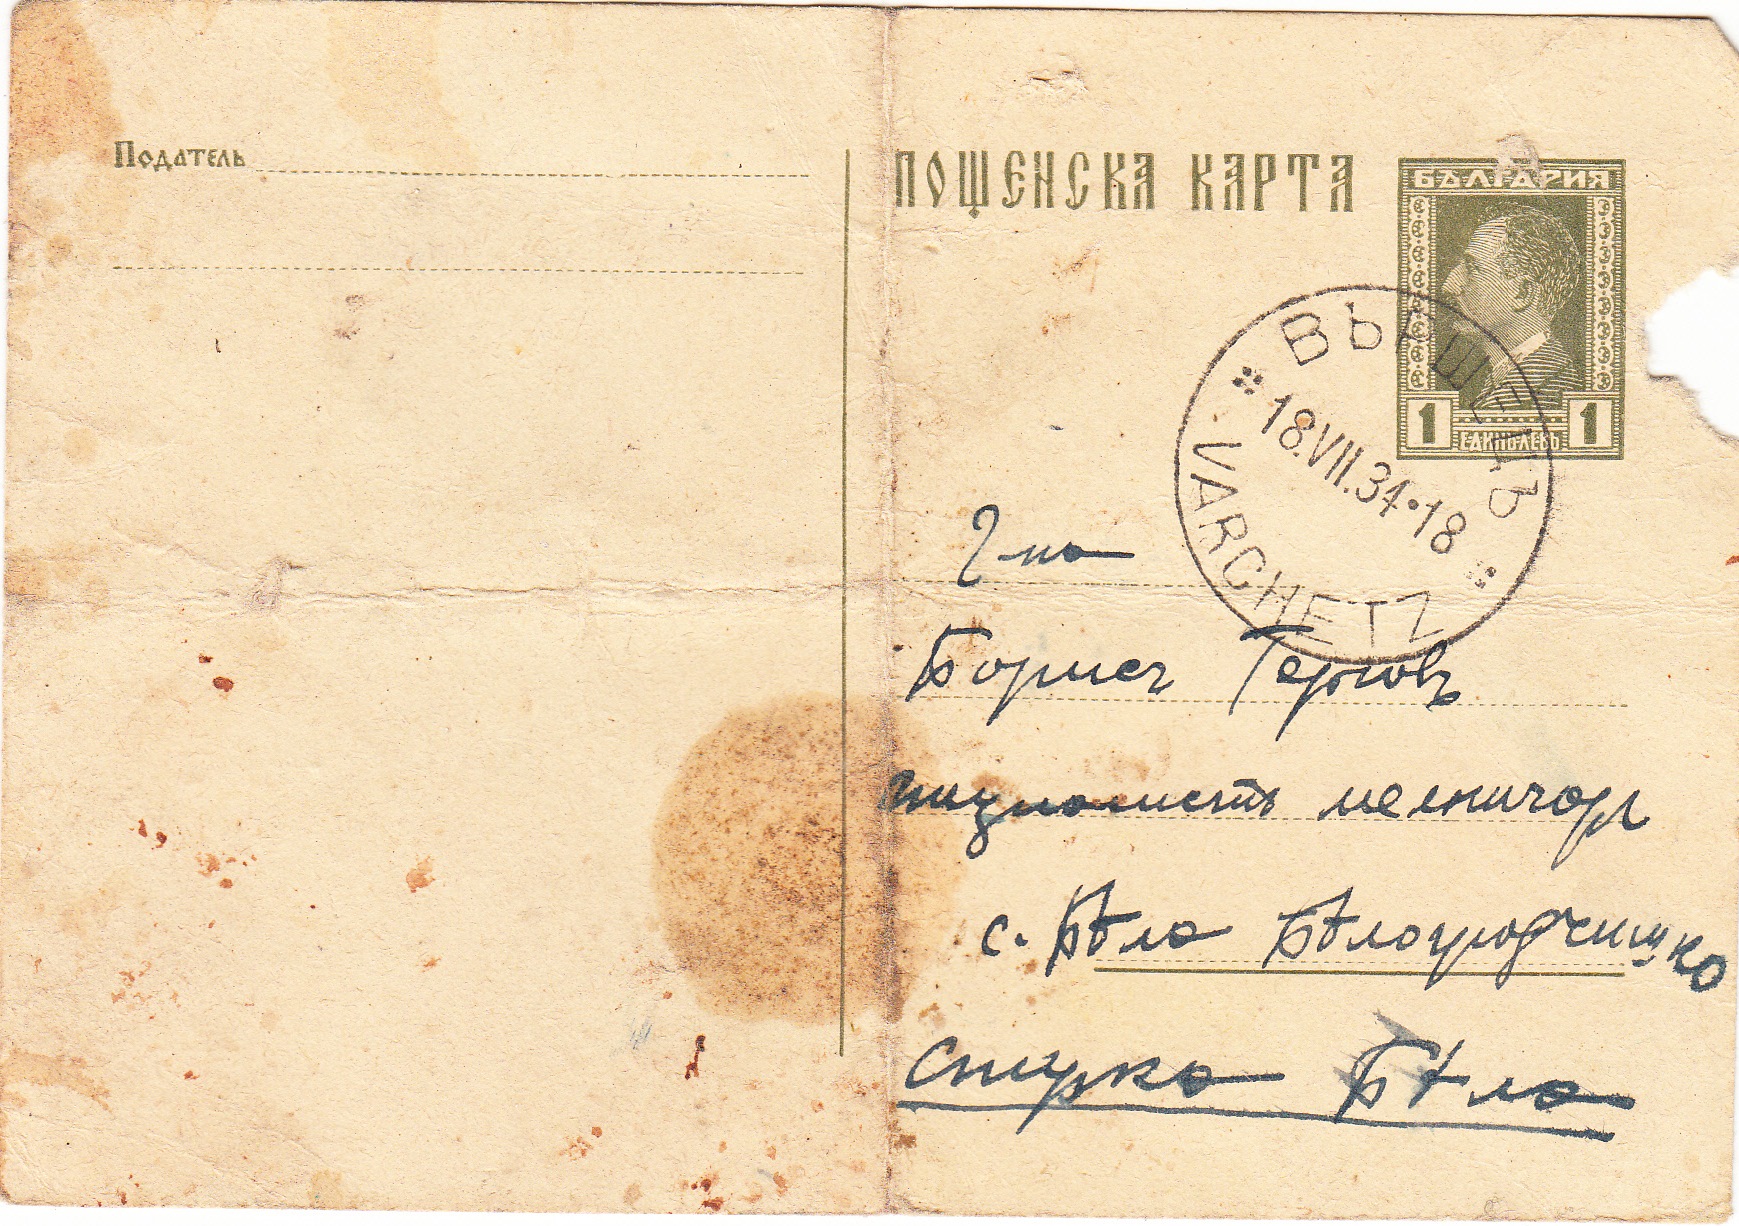 Податель
ПОЩЕНСКА КАРТА
БЪЛГАРИЯ
1 ЕДИНЪ ЛЕВЪ 1
ВЪРШЕЦЪ
18.VII.34·18
VARCHETZ
Г-на
Борисъ
мелничаръ
с. Бѣла Бѣлоградчишко
спирка Бѣла